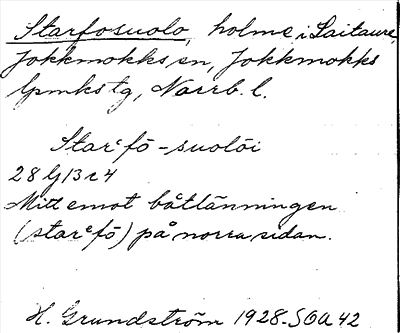 Starfosuolo, holme i Laitaure,
Jokkmokks sn, Jokkmokks
lpmks tg, Norrb. l.
Starˈfō-suolōi
28 G/13 c 4
Mitt emot båtlänningen
(starˈfō) på norra sidan.
H. Grundström 1928. SOA 42